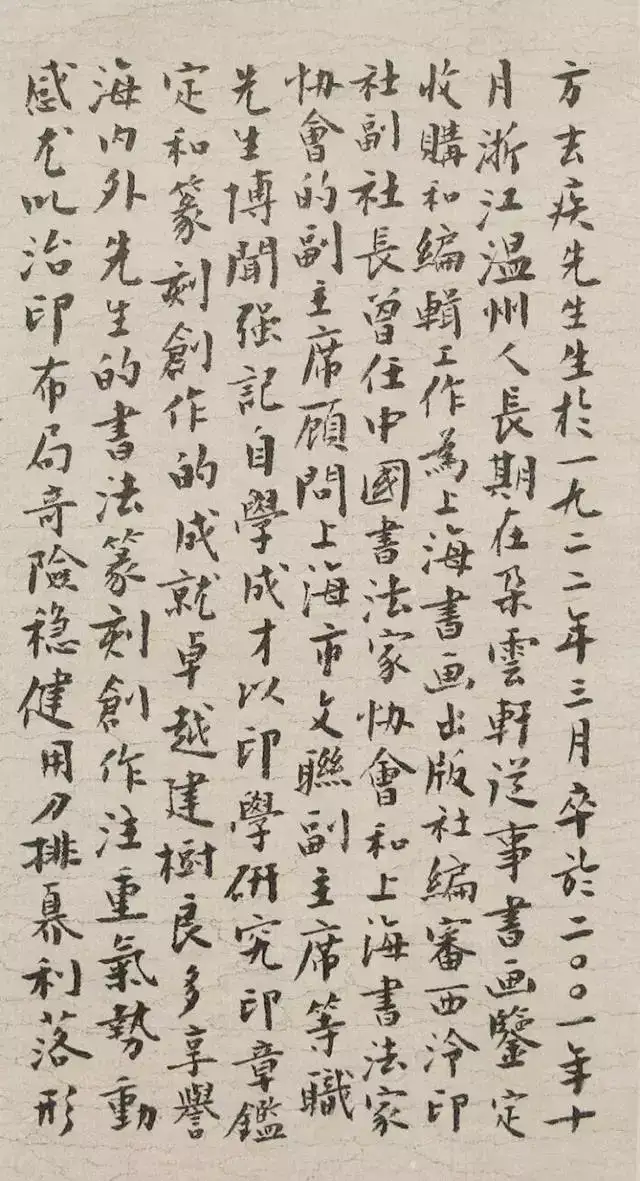 方去疾先生生於一九二二年三月卒於二〇〇一年十
月浙江温州人長期在朶雲軒從事書画鑒定
收購和編輯工作為上海書画出版社編審西泠印
社副社長曾任中國書法家协會和上海書法家
协會的副主席顧問上海市文聯副主席等職
先生博聞强記自學成才以印學研究印章鑑
定和篆刻創作的成就卓越建樹良多享譽
海内外先生的書法篆刻創作注重氣勢動
感尤以治印布局奇險穏健用刀排奡利落形